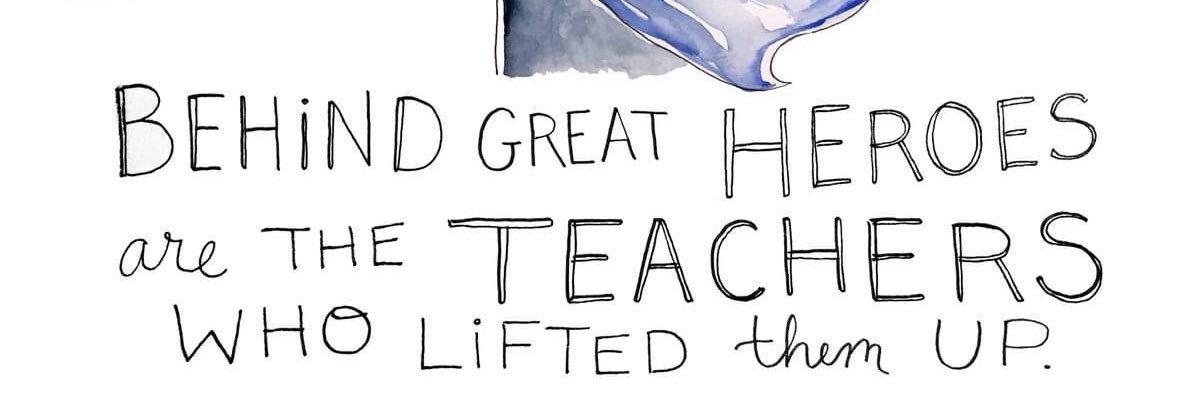 BEHiND GREAT HEROES
are THE TEACHERS
WHO LiFTED them UP.